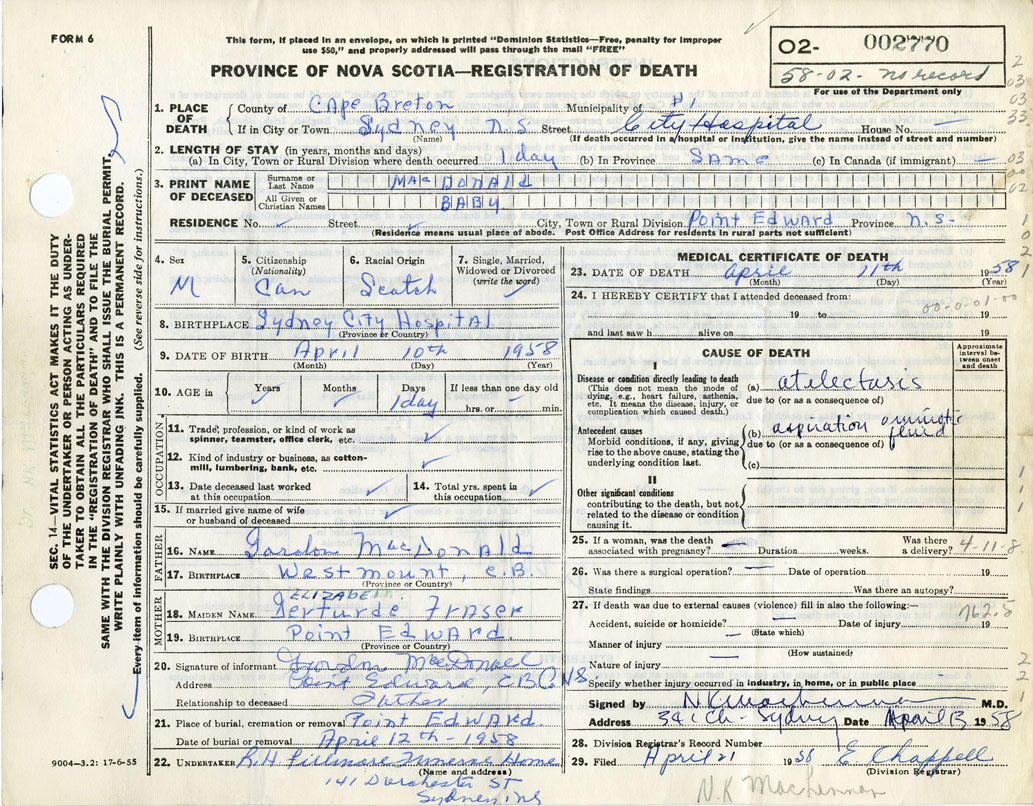 FORM 6
This form, if placed in an envelope, on which is printed "Dominion Statistics—Free, penalty for improper
use $50," and properly addressed will pass through the mail "FREE"
PROVINCE OF NOVA SCOTIA—REGISTRATION OF DEATH
02- 002770
58-02- no record
For use of the Department only
SEC. 14—VITAL STATISTICS ACT MAKES IT THE DUTY
OF THE UNDERTAKER OR PERSON ACTING AS UNDER-
TAKER TO OBTAIN ALL THE PARTICULARS REQUIRED
IN THE "REGISTRATION OF DEATH" AND TO FILE THE
SAME WITH THE DIVISION REGISTRAR WHO SHALL ISSUE THE BURIAL PERMIT.
WRITE PLAINLY WITH UNFADING INK. THIS IS A PERMANENT RECORD.
Every item of information should be carefully supplied. (See reverse side for instructions.)
1. PLACE OF DEATH
County of Cape Breton Municipality of #1
If in City or Town Sydney N.S. Street City Hospital House No. —
(Name) (If death occurred in a hospital or institution, give the name instead of street and number)
2. LENGTH OF STAY (in years, months and days)
(a) In City, Town or Rural Division where death occurred 1 day (b) In Province Same (c) In Canada (if immigrant) —
3. PRINT NAME OF DECEASED
Surname or Last Name MacDonald
All Given or Christian Names BABY
RESIDENCE No. Street City, Town or Rural Division Point Edward Province N.S.
(Residence means usual place of abode. Post Office Address for residents in rural parts not sufficient)
4. Sex M
5. Citizenship (Nationality) Can
6. Racial Origin Scotch
7. Single, Married, Widowed or Divorced (write the word)
8. BIRTHPLACE Sydney City Hospital
(Province or Country)
9. DATE OF BIRTH April 10th 1958
(Month) (Day) (Year)
10. AGE in Years Months Days 1 day If less than one day old
hrs. or min.
OCCUPATION
11. Trade, profession, or kind of work as
spinner, teamster, office clerk, etc.
12. Kind of industry or business, as cotton-
mill, lumbering, bank, etc.
13. Date deceased last worked
at this occupation
14. Total yrs. spent in
this occupation
15. If married give name of wife
or husband of deceased
FATHER
16. NAME Gordon MacDonald
17. BIRTHPLACE Westmount, C.B.
(Province or Country)
MOTHER
ELIZABETH
18. MAIDEN NAME Gerturde Fraser
19. BIRTHPLACE Point Edward.
(Province or Country)
20. Signature of informant Gordon MacDonald
Address Point Edward, C.B.Co N.S.
Relationship to deceased Father
21. Place of burial, cremation or removal Point Edward
Date of burial or removal April 12th - 1958
22. UNDERTAKER R.H. Fillmore Funeral Home
(Name and address)
141 Dorchester ST
Sydney N.S
9004—3.2: 17-6-55
MEDICAL CERTIFICATE OF DEATH
23. DATE OF DEATH April 11th 1958
(Month) (Day) (Year)
24. I HEREBY CERTIFY that I attended deceased from:
00-0-01-00
19 to 19
and last saw h alive on 19
CAUSE OF DEATH
Approximate interval between onset and death
I
Disease or condition directly leading to death
(This does not mean the mode of
dying, e.g., heart failure, asthenia,
etc. It means the disease, injury, or
complication which caused death.)
(a) atelectasis
due to (or as a consequence of)
Antecedent causes
Morbid conditions, if any, giving
rise to the above cause, stating the
underlying condition last.
(b) aspiration amniotic fluid
due to (or as a consequence of)
(c)
II
Other significant conditions
contributing to the death, but not
related to the disease or condition
causing it.
25. If a woman, was the death
associated with pregnancy? — Duration weeks. Was there
a delivery? 4-11-8
26. Was there a surgical operation? — Date of operation 19
State findings Was there an autopsy?
27. If death was due to external causes (violence) fill in also the following:—
762.5
Accident, suicide or homicide? — Date of injury 19
(State which)
Manner of injury —
(How sustained)
Nature of injury —
Specify whether injury occurred in industry, in home, or in public place
Signed by N K MacLennan M.D.
Address 341 Ch- Sydney Date April 13 1958
28. Division Registrar's Record Number
29. Filed April 21 1958 E Chappell
(Division Registrar)
N.K MacLennan